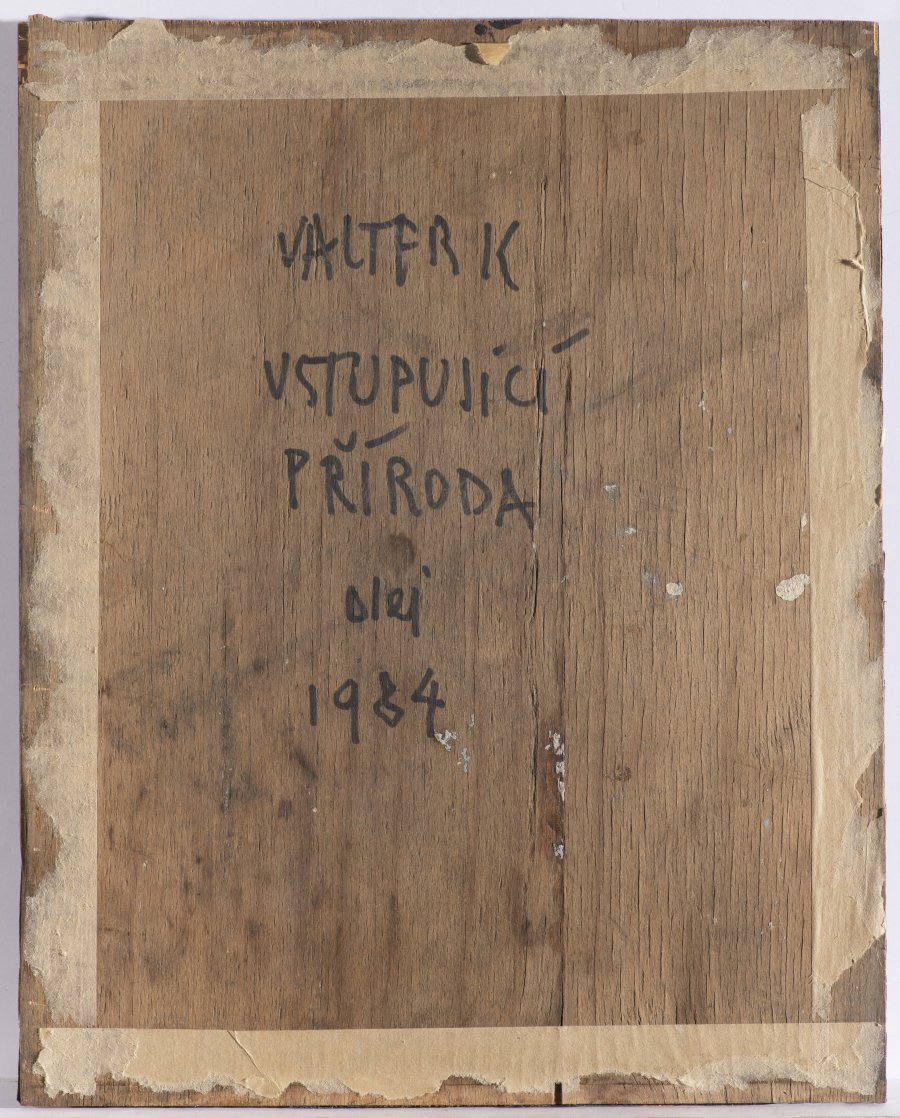 VALTER K
VSTUPUJÍCÍ
PŘÍRODA
olej
1984